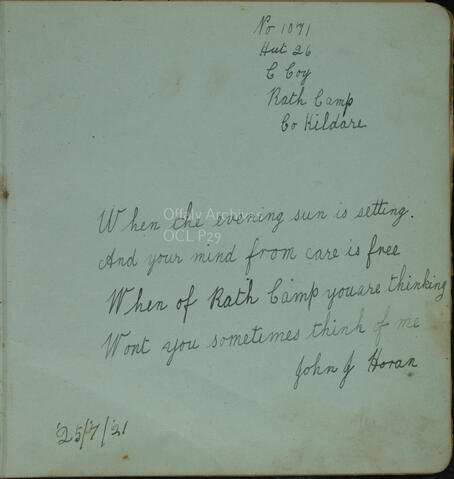 No 1071
Hut 26
C Coy
Rath Camp
Co Kildare
When the evening sun is setting.
Offaly Archives
OCL P29
And your mind from care is free
When of Rath Camp you are thinking
Wont you sometimes think of me
John J Horan
25/7/21